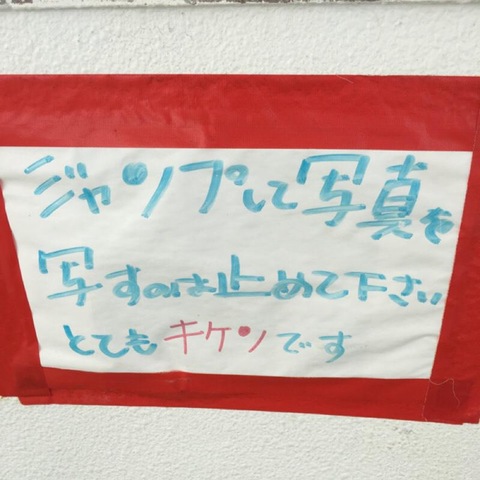 ジャンプして写真を
写すのは止めて下さい
とてもキケンです